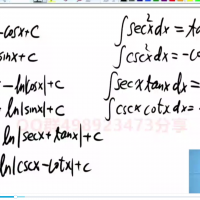 -cosx+C
sinx+C
-ln|cosx|+C
ln|sinx|+C
ln|secx+tanx|+C
ln|cscx-cotx|+C
∫sec²xdx=ta
∫csc²xdx=-co
∫secxtanxdx=
∫cscxcotxdx=-